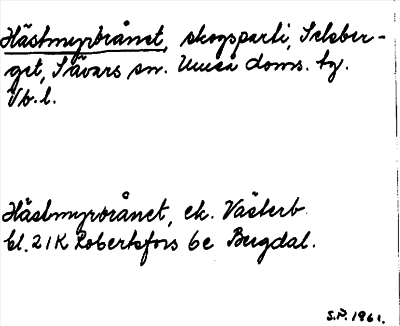 Hästmyrbrånet, skogsparti, Selsber-
get, Sävars sn. Umeå doms. tg.
Vb. l.
Hästmyrbrånet, ek. Västerb.
bl. 21K Robertsfors 6e Bygdal.
S.P. 1961.